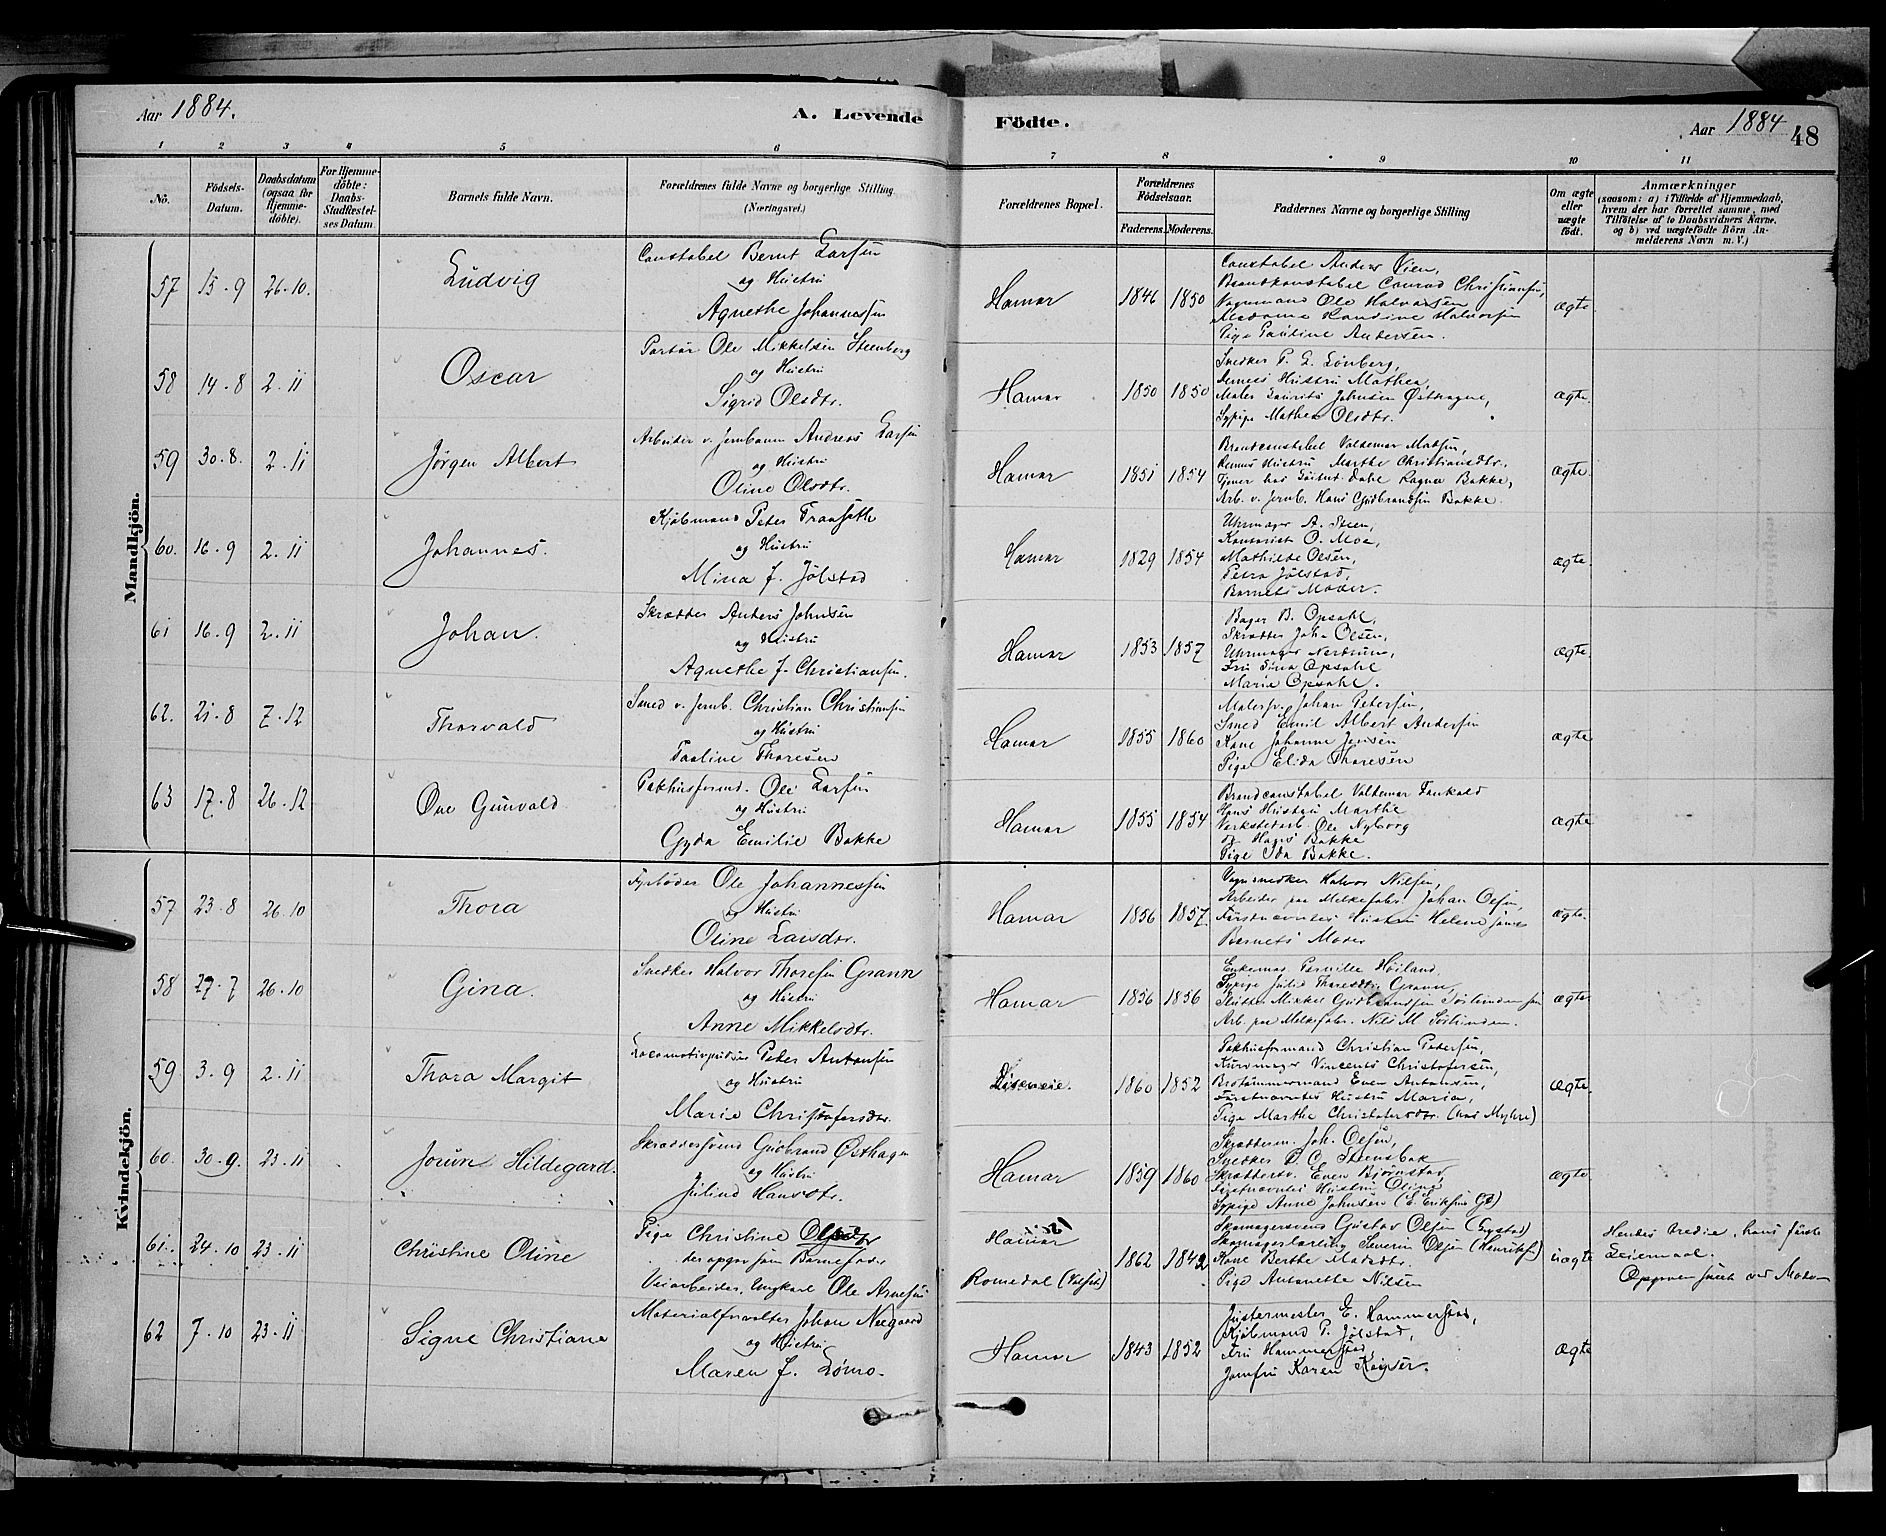 Aar 1884.
A. Levende
Födte.
Aar 1884
48
1 2 3 4 5 6 7 8 9 10 11
No.
Födsels-
Datum.
Daabsdatum
(ogsaa for
Hjemme-
döbte).
For Hjemme-
döbte:
Daabs-
Stadfæstel-
ses Datum.
Barnets fulde Navn.
Forældrenes fulde Navne og borgerlige Stilling
(Næringsvei.)
Forældrenes Bopæl.
Forældrenes
Födselsaar.
Faderens. Moderens.
Faddernes Navne og borgerlige Stilling
Om ægte
eller
uægte
födt.
Anmærkninger
(saasom: a) i Tilfælde af Hjemmedaab,
hvem der har forrettet samme, med
Tilföielse af to Daabsvidners Navne,
og b) ved uægtefödte Börn An-
melderens Navn m. V.)
Mandkjön.
57 15.9 26.10. Ludvig
Constabel Bernt Larsen
og Hustru
Agnethe Johannessen
Hamar 1846 1850
Constabel Anders Vien,
Brandkonstabel Conrad Christiansen,
Vognmand Ole Halvorsen
Madame Randine Halvorsen
Pige Pauline Andersen.
ægte
58 14.8 2.11 Oscar
Portør Ole Mikkelsen Steenberg
og Hustru
Sigrid Olsdtr.
Hamar 1850 1850
Snedker P. G. Lønberg,
dennes Hustru Mathea,
Maler Laurits Johnsen Østhagen,
Sypige Mathea Olsdtr.
ægte.
59 30.8. 2.11 Jørgen Albert
Arbeider v. Jernbanen Andreas Larsen
og Hustru
Oline Olsdtr.
Hamar 1851 1854
Brandconstabel Valdemar Madsen,
dennes Hustru Marthe Christiansdtr.
Tjener hos Dahl Ragna Bakke,
Arb. v. Jernb. Hans Gudbrandsen Bakke.
ægte.
60. 16.9 2.11 Johannes.
Kjøbmand Peter Fransæth
og Hustru
Mina J. Jølstad
Hamar 1829 1854
Uhrmager A. Steen,
Kontorist O. Moe,
Mathilde Olsen,
Petra Jølstad,
Barnets Moder.
ægte
61 16.9 2.11 Johan.
Skrædder Anders Johnsen
og Hustru
Agnethe J. Christiansen.
Hamar 1853 1857
Bager B. Opsahl,
Skrædder Joh. Olsen,
Uhrmager Nerdrum,
Fru Sina Opsahl
Marie Opsahl.
ægte.
62. 21.8 7.12 Thorvald
Smed v. Jernb. Christian Christiansen
og Hustru
Pauline Thoresen
Hamar 1855 1860
Malersv. Johan Petersen,
Smed Emil Albert Andersen
Kone Johanne Jensen
Pige Elida Thoresen
ægte
63 17.8 26.12 Ove Gunvald
Pakhusformd. Ole Larsen
og Hustru
Gyda Emilie Bakke
Hamar 1855 1854
Brandconstabel Valdemar
Hans Hustru Marthe
Verkstedarb. Ole Nyborg
og Hans Bakke
Pige Ida Bakke.
ægte
Kvindekjön.
57 23.8 26.10 Thora
Fyrbøder Ole Johannessen
og Hustru
Oline Larsdtr.
Hamar 1856 1857.
Vognsnedker Halvor Nilsen,
Arbeider paa Melkefabr. Johan Olsen,
Førstnævntes Hustru Helene
Barnets Moder
ægte.
58 27.7 26.10 Gina.
Snedker Halvor Thoresen Grann
og Hustru
Anne Mikkelsdtr.
Hamar 1856 1856
Enkemad. Pernille Høiland,
Sypige Julie Thoresdtr. Grann,
Mikkel Gudbrandsen Sørlunden
Arb. paa Melkefabr. Nils M. Sørlunden.
ægte
59 3.9 2.11 Thora Margit
Locomotivpudser Peter Antonsen
og Hustru
Marie Christofersdtr.
1860 1852
Pakhusformand Christian Petersen,
Kurvmager Vincents Christofersen,
Brotømmermand Even Antonsen,
Førstnævntes Hustru Maria,
Pige Marthe Christofersdtr. (hos Myhre)
ægte
60. 30.9. 23.11 Jorun Hildegard.
Skræddersvend Gudbrand Østhagen
og Hustru
Juline Hansdtr.
Hamar 1859 1860
Skrædderm. Joh. Olsen,
Snedker P. C. Steensbak
Skræddersv. Even Bjørnstad,
Førstnævntes Hustru Oline
Sypige Anne Johnsen (E. Eriksens Gd)
ægte.
61. 24.10 23.11 Christine Oline
Pige Christine Olsdtr
der opgav som Barnefader
Veiarbeider, Ungkarl Ole Arnesen
Hamar
Romedal (Valset)
1862 1842
Skomagersvend Gustav Olsen (Enstad)
Skomagerlærling Severin Olsen (Henriksen)
Kone Berthe Madsdtr.
Pige Antonette Nilsen
uægte
Hendes tredie, hans første
Leiermaal.
Opgaven skeet ved Moderen
62 7.10 23.11 Signe Christiane
Materialforvalter Johan Neegaard
og Hustru
Maren J. Lømo.
Hamar 1843 1852
Justermester E. Hammerstad,
Kjøbmand P. Jølstad,
Fru Hammerstad,
Jomfru Karen Keyser.
ægte